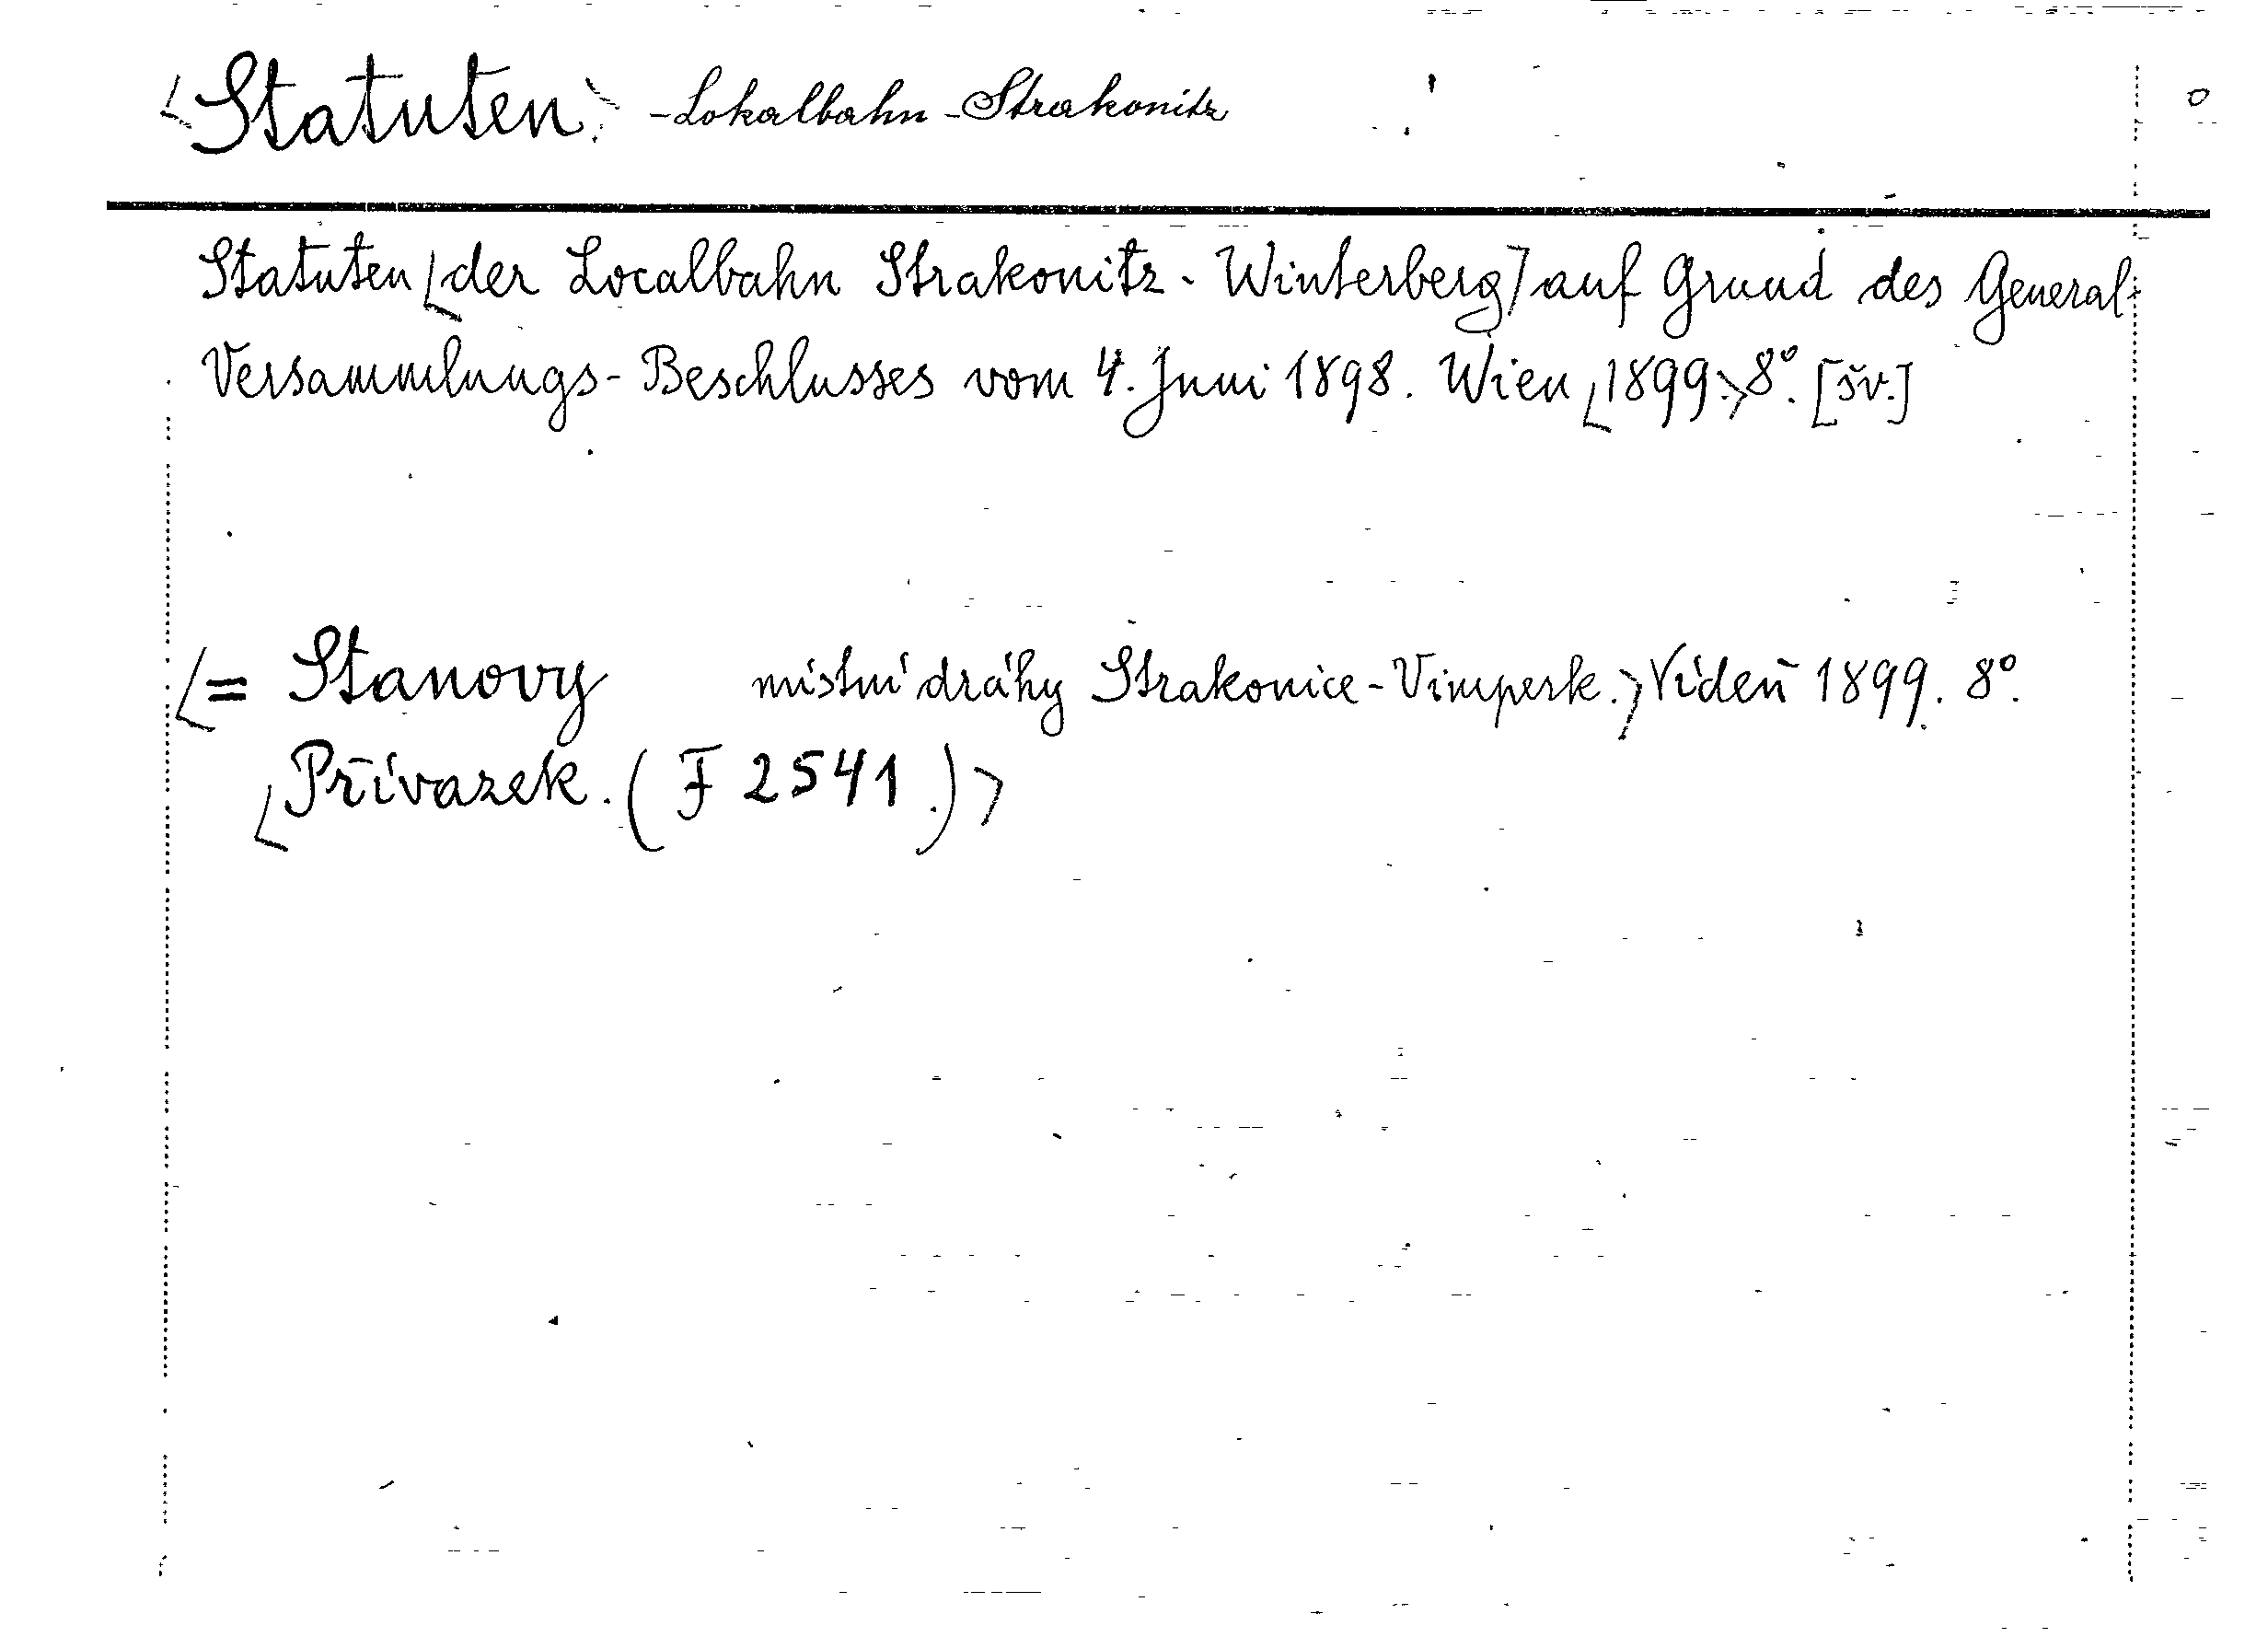 <Statuten> -Lokalbahn-Strakonitz
Statuten <der Localbahn Strakonitz-Winterberg> auf Grund des General-
Versammlungs-Beschlusses vom 4. Juni 1898. Wien <1899.> 8°. [šv.]
<= Stanovy místní dráhy Strakonice-Vimperk.> Vídeň 1899. 8°.
<Přívazek. (F 2541.)>